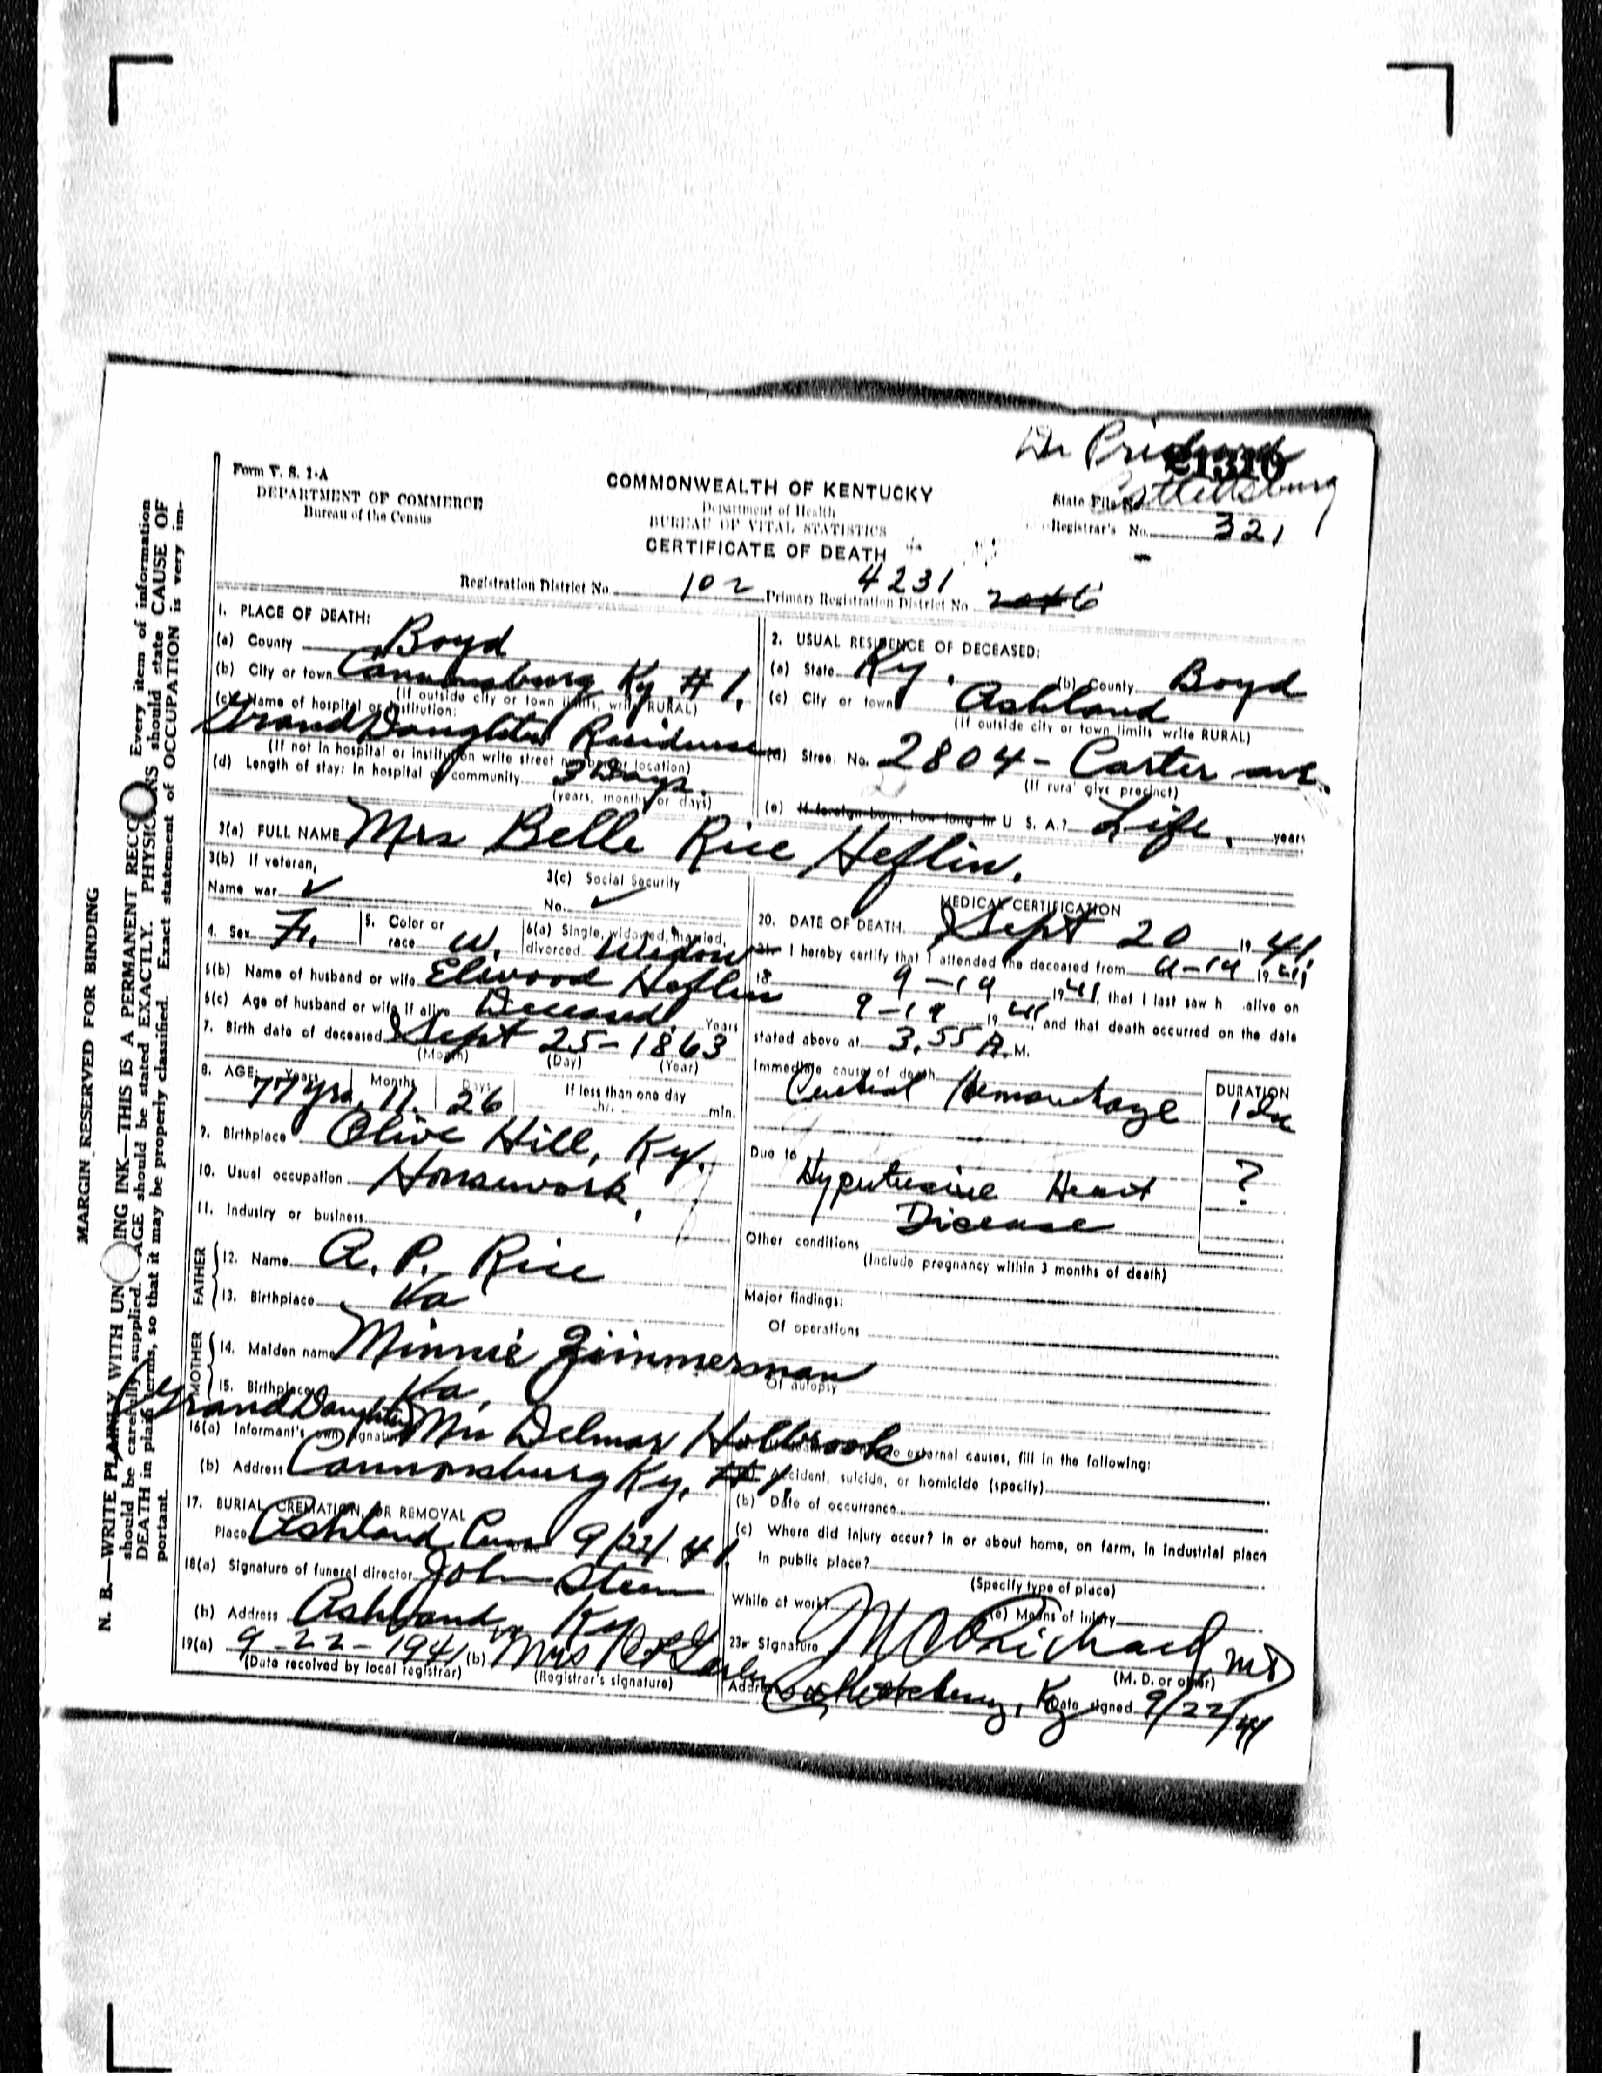 Dr Prichard
Catlettsburg
Form V. S. 1-A
DEPARTMENT OF COMMERCE
Bureau of the Census
COMMONWEALTH OF KENTUCKY
Department of Health
BUREAU OF VITAL STATISTICS
CERTIFICATE OF DEATH
State File No. 21310
Registrar's No. 321
Registration District No. 102 Primary Registration District No. 4231
1. PLACE OF DEATH:
(a) County Boyd
(b) City or town Cannonsburg Ky # 1.
(If outside city or town limits, write RURAL)
(c) Name of hospital or institution:
Grand Daughter Residence
(If not in hospital or institution write street number or location)
(d) Length of stay: In hospital or community 3 Days.
(years, months or days)
2. USUAL RESIDENCE OF DECEASED:
(a) State Ky. (b) County Boyd
(c) City or town Ashland
(If outside city or town limits write RURAL)
(d) Street No. 2804 - Carter ave.
(If rural give precinct)
(e) If foreign born, how long in U. S. A.? Life. years
3(a) FULL NAME Mrs Belle Rice Heflin.
3(b) If veteran,
Name war ✓
3(c) Social Security
No. ✓
4. Sex F. 5. Color or race W. 6(a) Single, widowed, married, divorced Widow
6(b) Name of husband or wife Elwood Heflin
6(c) Age of husband or wife if alive Deceased. Years
7. Birth date of deceased Sept 25-1863
(Month) (Day) (Year)
8. AGE: Years Months Days If less than one day
77 yrs. 11. 26 hr. min.
9. Birthplace Olive Hill, Ky.
10. Usual occupation Housework.
11. Industry or business
FATHER
12. Name A. P. Rice
13. Birthplace Va
MOTHER
14. Maiden name Minnie Zimmerman
15. Birthplace Va.
Grand Daughter
16(a) Informant's own signature Mrs Delmar Holbrook
(b) Address Cannonsburg Ky. # 1.
17. BURIAL, CREMATION, OR REMOVAL
Place Ashland Cem Date 9/22/41.
18(a) Signature of funeral director John Steen
(b) Address Ashland, Ky
19(a) 9-22-1941 (b) Mrs
(Date received by local registrar) (Registrar's signature)
MEDICAL CERTIFICATION
20. DATE OF DEATH Sept 20 1941.
21. I hereby certify that I attended the deceased from 9-19 1941
to 9-19 1941, that I last saw h alive on
9-19 1941 and that death occurred on the date
stated above at 3.55 A. M.
Immediate cause of death DURATION
Cerebral Hemorrhage 1 da
Due to
Hypertensive Heart ?
Disease
Other conditions
(Include pregnancy within 3 months of death)
Major findings:
Of operations
Of autopsy
external causes, fill in the following:
Accident, suicide, or homicide (specify)
(b) Date of occurrence
(c) Where did injury occur? In or about home, on farm, in industrial place
in public place?
(Specify type of place)
While at work? (e) Means of Injury
23. Signature M C Prichard MD
(M. D. or other)
Address Catlettsburg, Ky Date signed 9/22/41
MARGIN RESERVED FOR BINDING
N. B.—WRITE PLAINLY WITH UNFADING INK—THIS IS A PERMANENT RECORD. Every item of information
should be carefully supplied. AGE should be stated EXACTLY. PHYSICIANS should state CAUSE OF
DEATH in plain terms, so that it may be properly classified. Exact statement of OCCUPATION is very im-
portant.